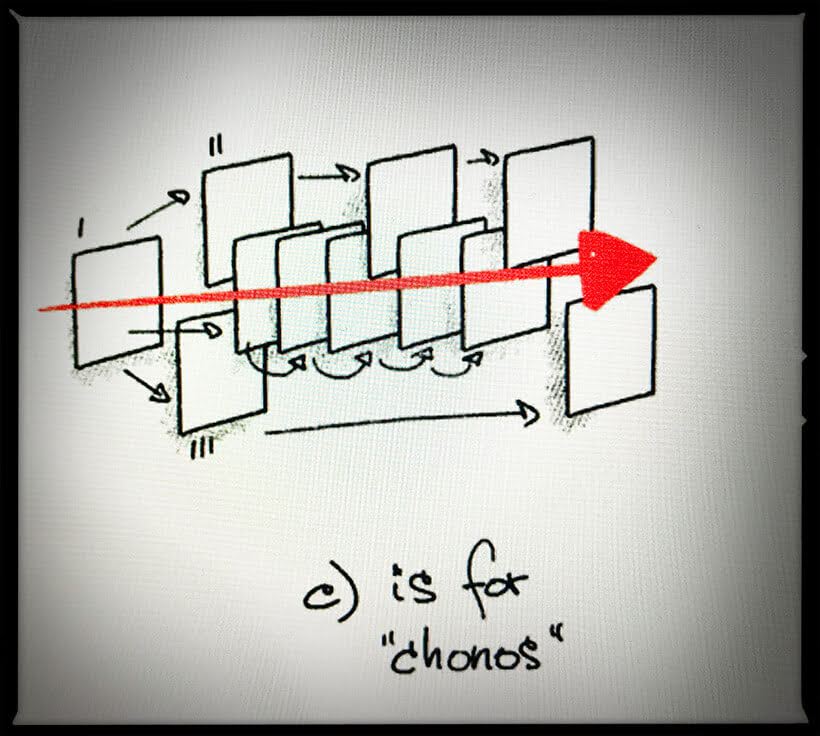 I
II
III
c) is for
"chonos"